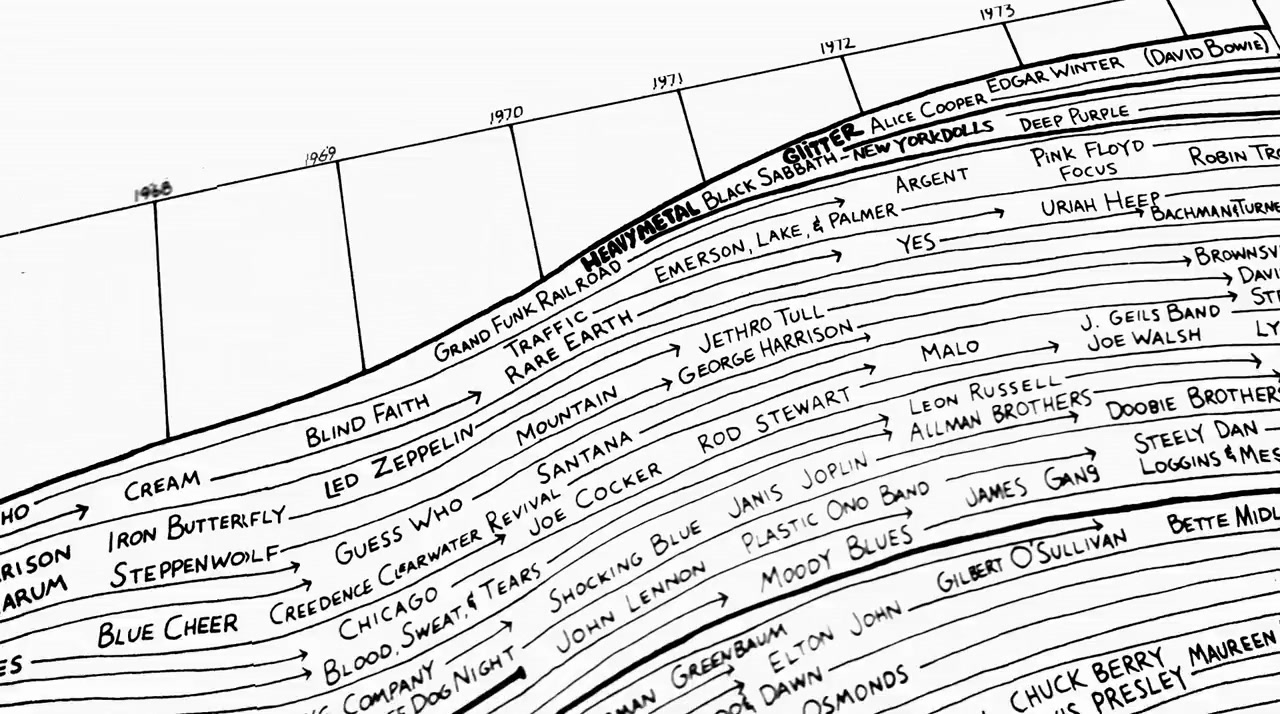 1968
1969
1970
1971
1972
1973
GLITTER ALICE COOPER EDGAR WINTER (DAVID BOWIE)
HEAVY METAL BLACK SABBATH - NEW YORK DOLLS DEEP PURPLE
GRAND FUNK RAILROAD
ARGENT
PINK FLOYD
FOCUS
TRAFFIC
EMERSON, LAKE, & PALMER
URIAH HEEP
RARE EARTH
YES
BLIND FAITH
JETHRO TULL
GEORGE HARRISON
CREAM
LED ZEPPELIN
MOUNTAIN
MALO
J. GEILS BAND
JOE WALSH
IRON BUTTERFLY
SANTANA
ROD STEWART
LEON RUSSELL
ALLMAN BROTHERS
STEPPENWOLF
GUESS WHO
JOE COCKER
JANIS JOPLIN
STEELY DAN
BLUE CHEER
CREEDENCE CLEARWATER REVIVAL
SHOCKING BLUE
PLASTIC ONO BAND
JAMES GANG
CHICAGO
BLOOD, SWEAT, & TEARS
JOHN LENNON
MOODY BLUES
GILBERT O'SULLIVAN
COMPANY
DOG NIGHT
GREENBAUM
ELTON JOHN
DAWN
OSMONDS
CHUCK BERRY
PRESLEY
MAUREEN